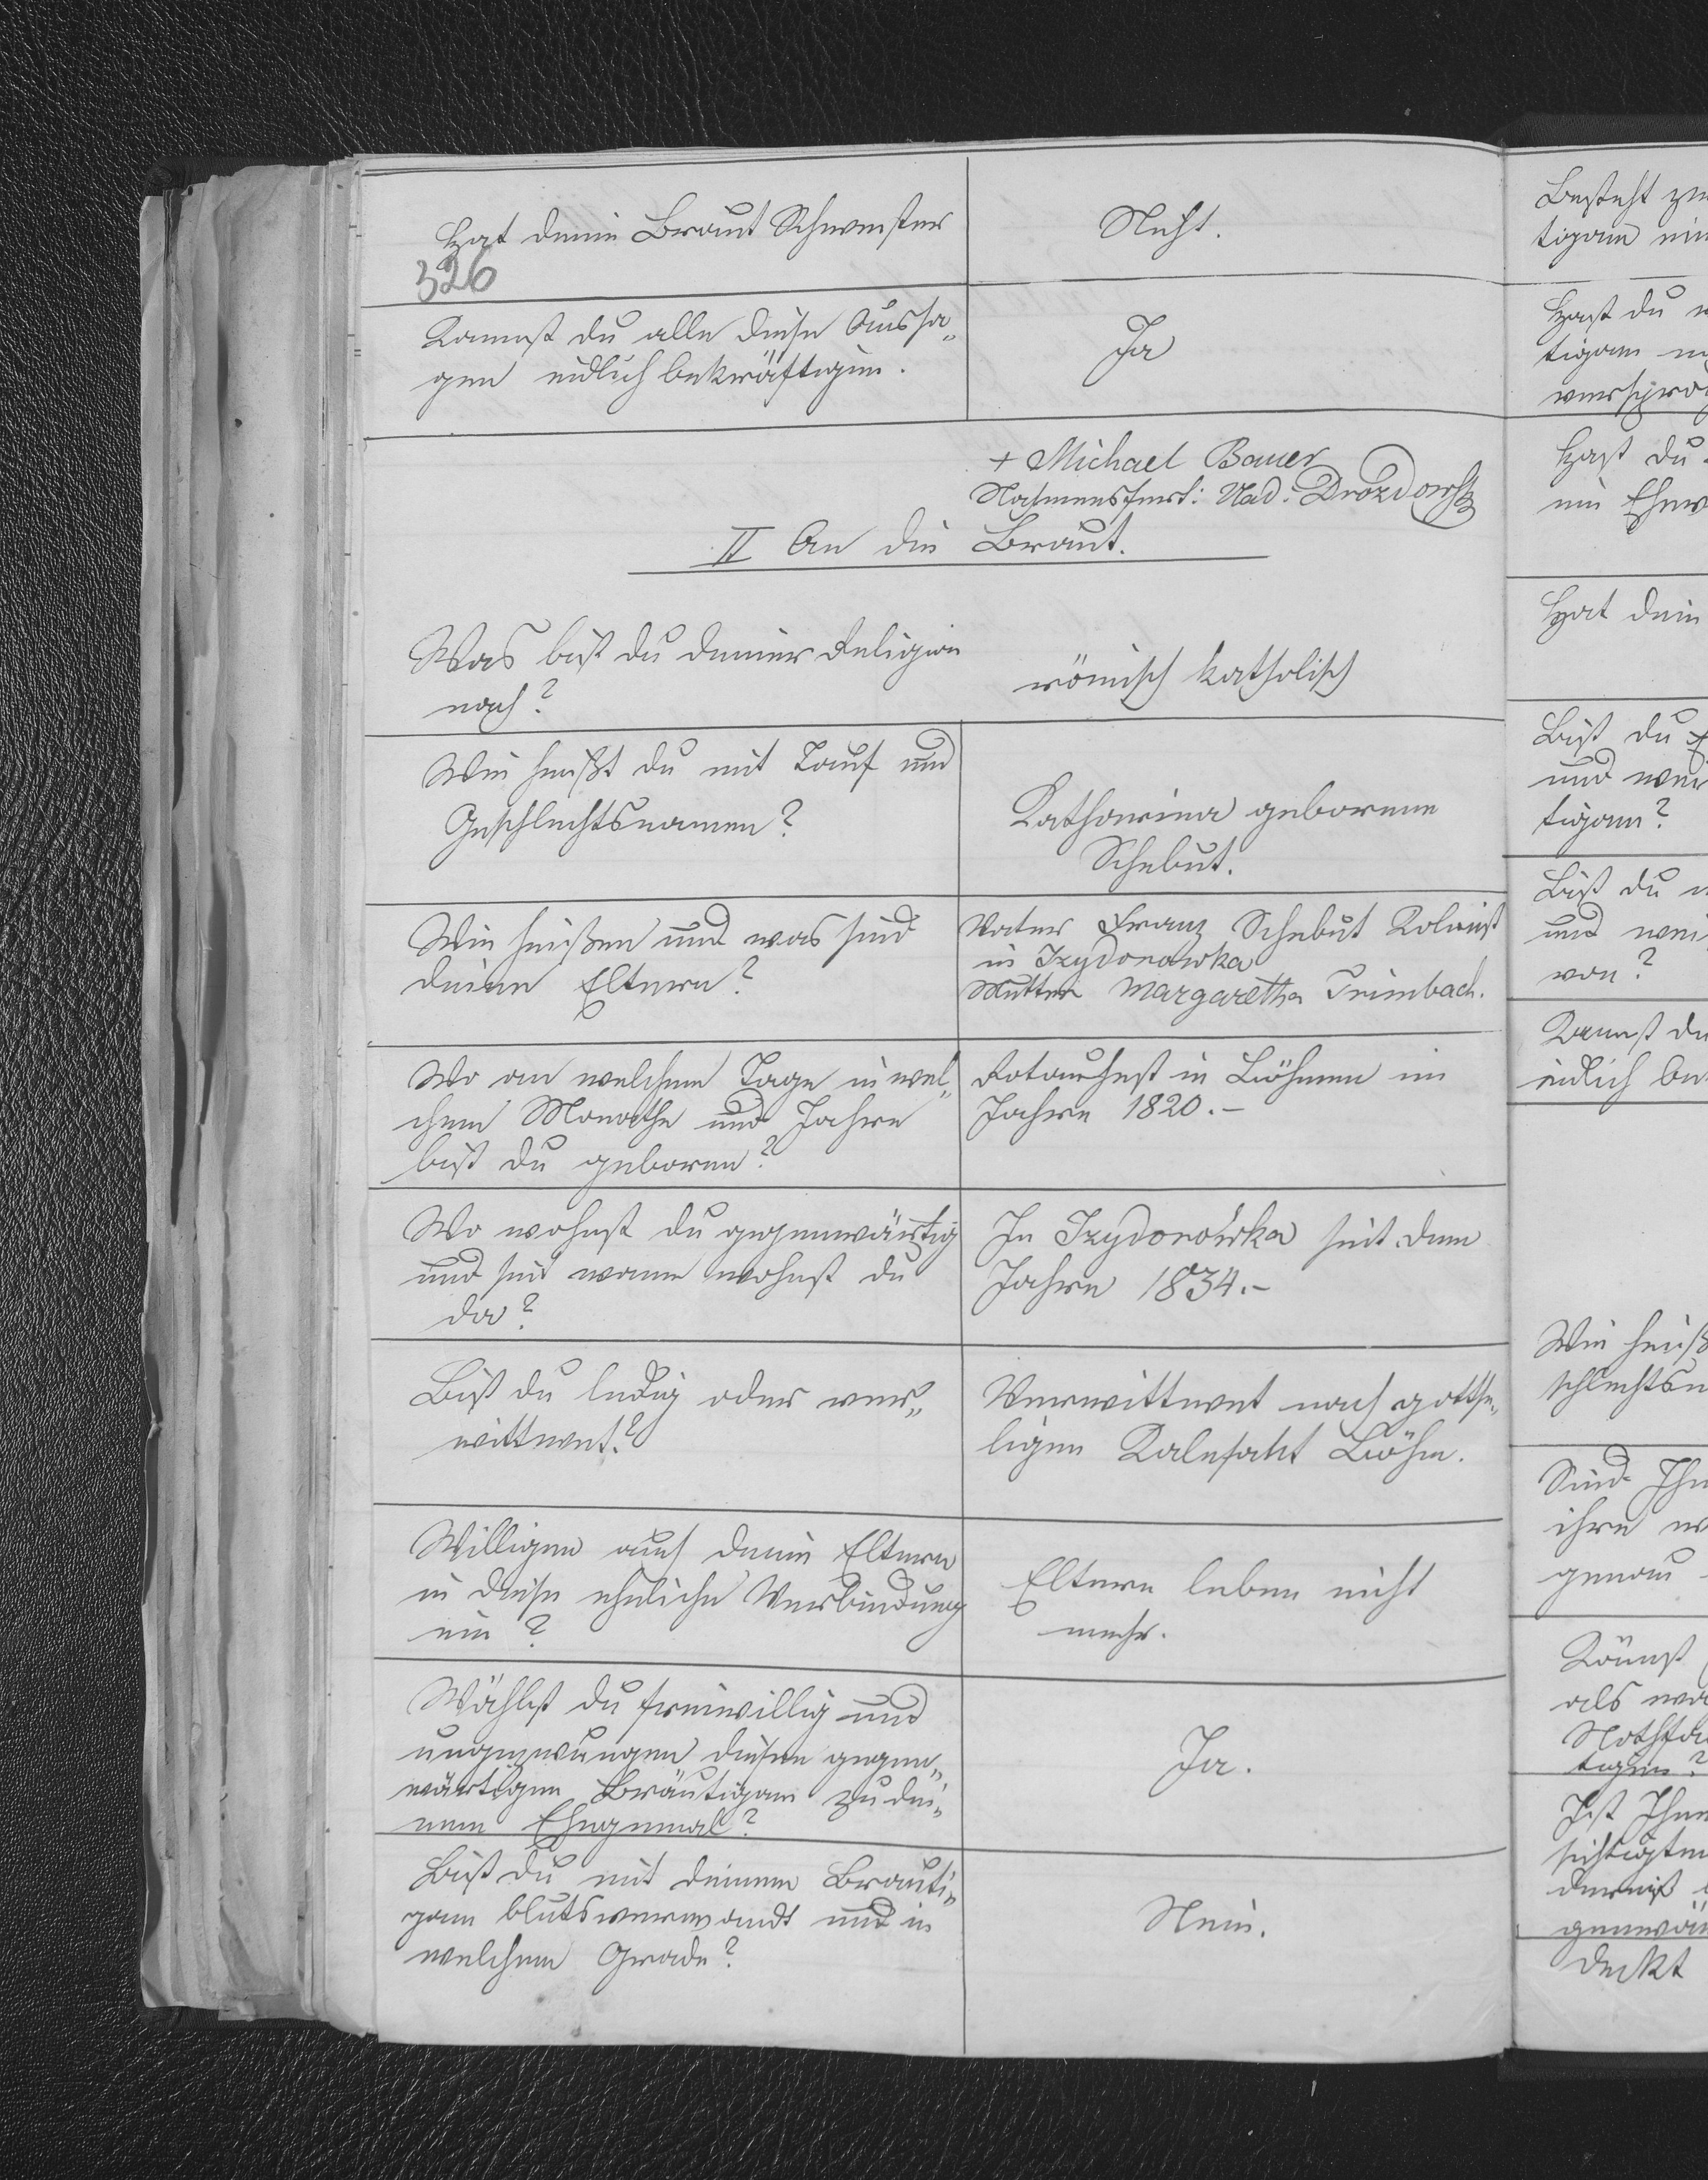 Hat deine Braut Schwester
Nicht.
326
Kannst du alle diese Aussa„
gen eidlich bekräftigen.
Ja
+ Michael Bauer
Nahmensfert: Drozdowski
II An die Braut.
Was bist du deiner Religion
nach?
römisch katholisch
Wie heißt du mit Tauf und
Geschlechtsnamen?
Katharina geborene
Schebut.
Wie heißen und was sind
deine Eltern?
Vater Franz Schebut Kolonist
in Izydorowka
Mutter Margaretha Trimbach.
Wo an welchem Tage in wel„
chem Monathe und Jahre
bist du geboren?
in Böhmen im
Jahre 1820.–
Wo wohnst du gegenwärtig
und seit wann wohnst du
da?
In Izydorówka seit dem
Jahre 1834.–
Bist du ledig oder ver„
wittwet?
Verwittwet nach gottse„
ligen Böhm.
Willigen auch deine Eltern
in diese eheliche Verbindung
ein?
Eltern leben nicht
mehr.
Wählst du freiwillig und
ungezwungen diesen gegen„
wärtigen Bräutigam zu dei„
nem Ehegemal?
Ja.
Bist du mit deinem Brauti„
gam blutsverwandt und in
welchem Grade?
Nein.
Besteht
tigam
Hast du
tigam
Hast du
ein
Hat dein
Bist du
und
tigam?
Bist du
und
von?
Kannst du
eidlich be
Wie heiß
schlechtsn
Sind Ihn
ihre
genau
Könnst
als
Nothfa
tigen?
Ist Ihn
sichtigten
derniß
genwär
deckt